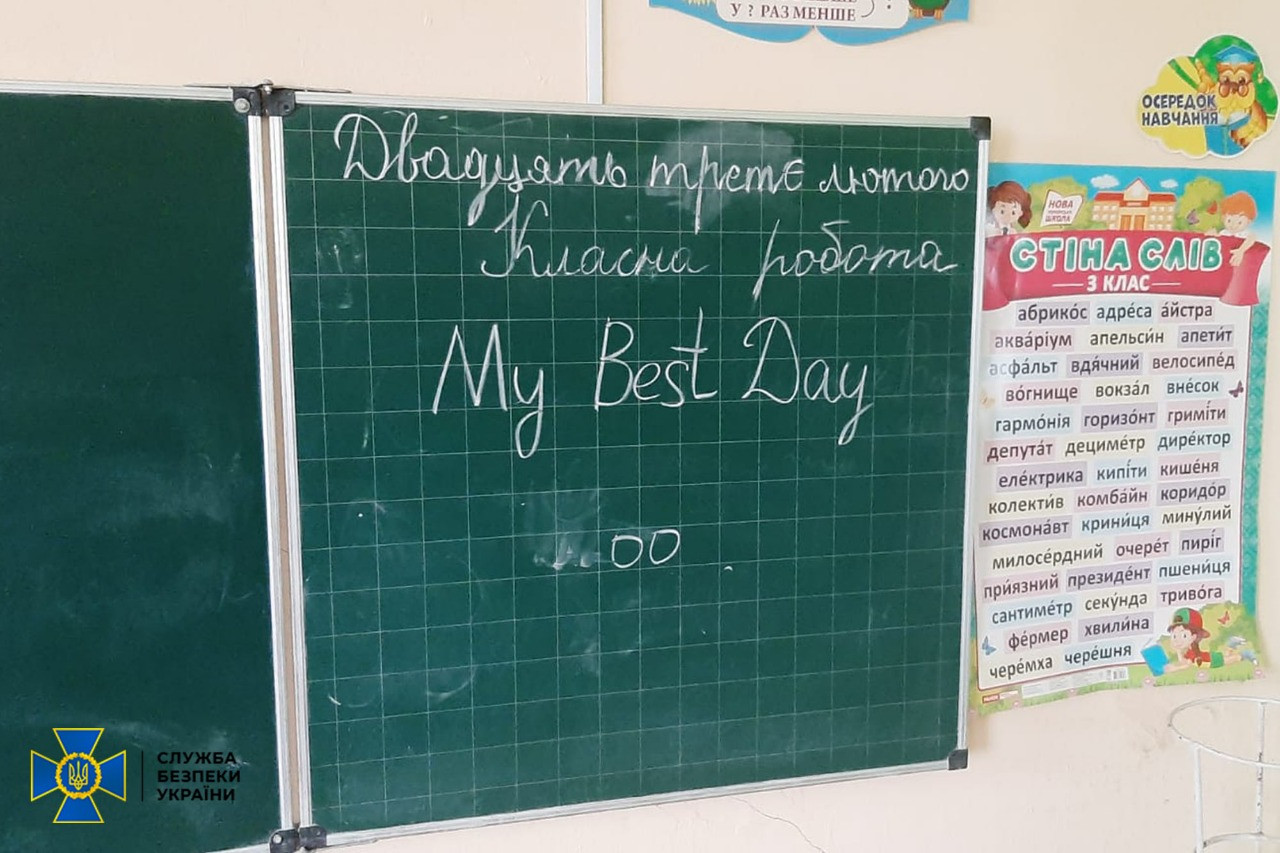 У ? РАЗ МЕНШЕ
ОСЕРЕДОК
НАВЧАННЯ
Двадцять третє лютого
Класна робота
My Best Day
оо
НОВА
ШКОЛА
СТІНА СЛІВ
3 КЛАС
абрико́с адре́са а́йстра
аква́ріум апельси́н апети́т
асфа́льт вдя́чний велосипе́д
во́гнище вокза́л вне́сок
гармо́нія горизо́нт гримі́ти
депута́т дециме́тр дире́ктор
еле́ктрика кипі́ти кише́ня
колекти́в комба́йн коридо́р
космона́вт крини́ця мину́лий
милосе́рдний очере́т пирі́г
при́язний президе́нт пшени́ця
сантиме́тр секу́нда триво́га
фе́рмер хвили́на
чере́мха чере́шня
СЛУЖБА
БЕЗПЕКИ
УКРАЇНИ